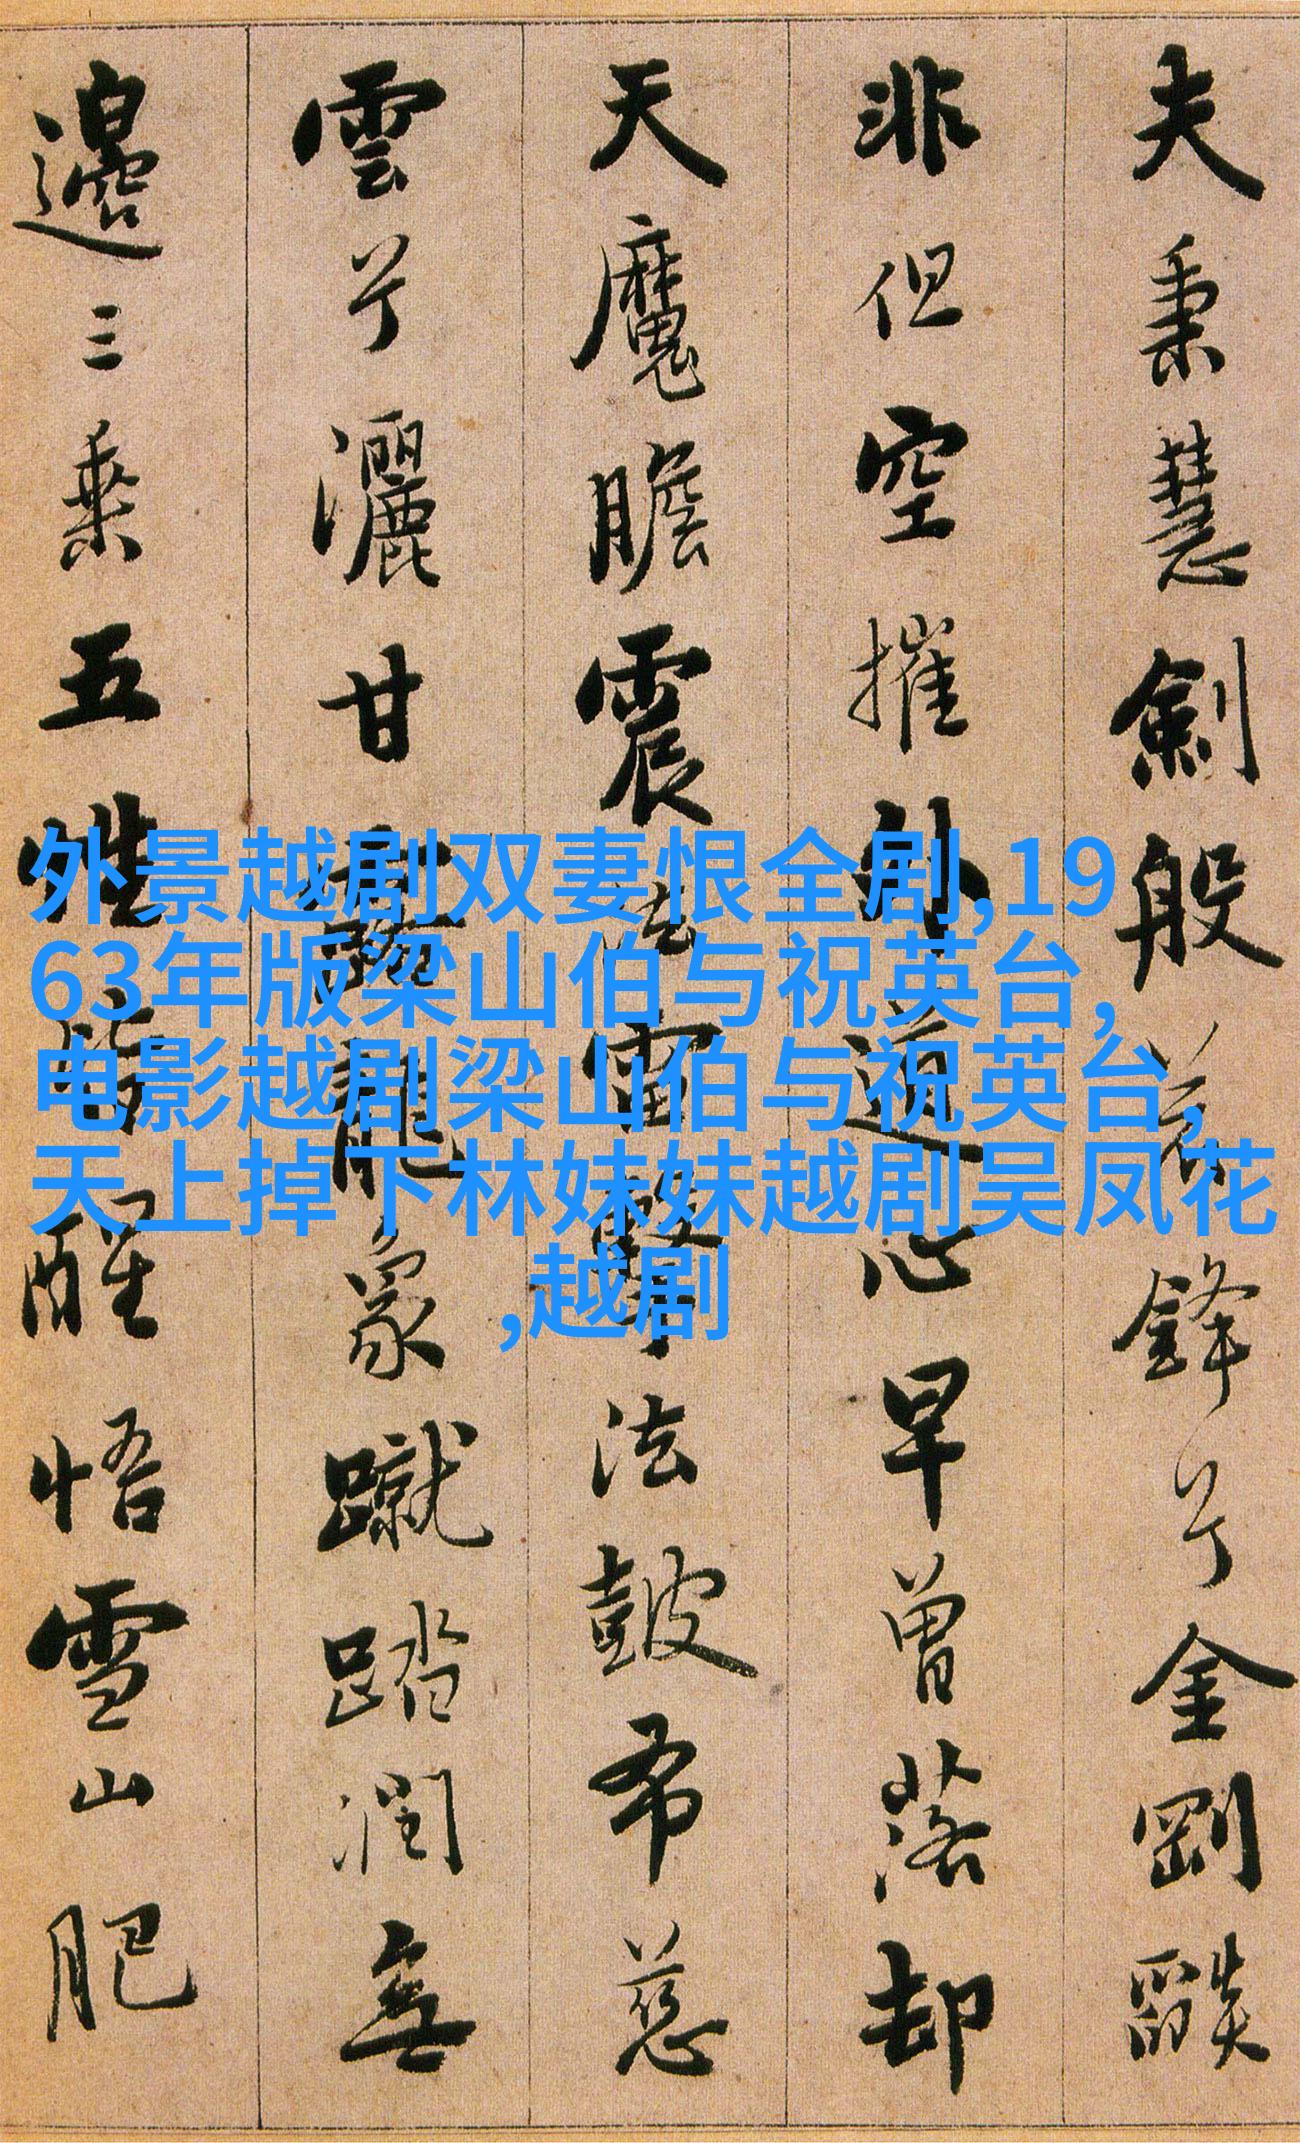 夫秉慧劍般若鋒兮金剛燄
非但空摧外道心早曾落却
天魔膽震法雷擊法皷布慈
雲兮灑甘露龍象蹴踏潤無
邊三乘五性皆醒悟雪山肥
外景越剧双妻恨全剧,19
63年版梁山伯与祝英台,
电影越剧梁山伯与祝英台,
天上掉下林妹妹越剧吴凤花
,越剧